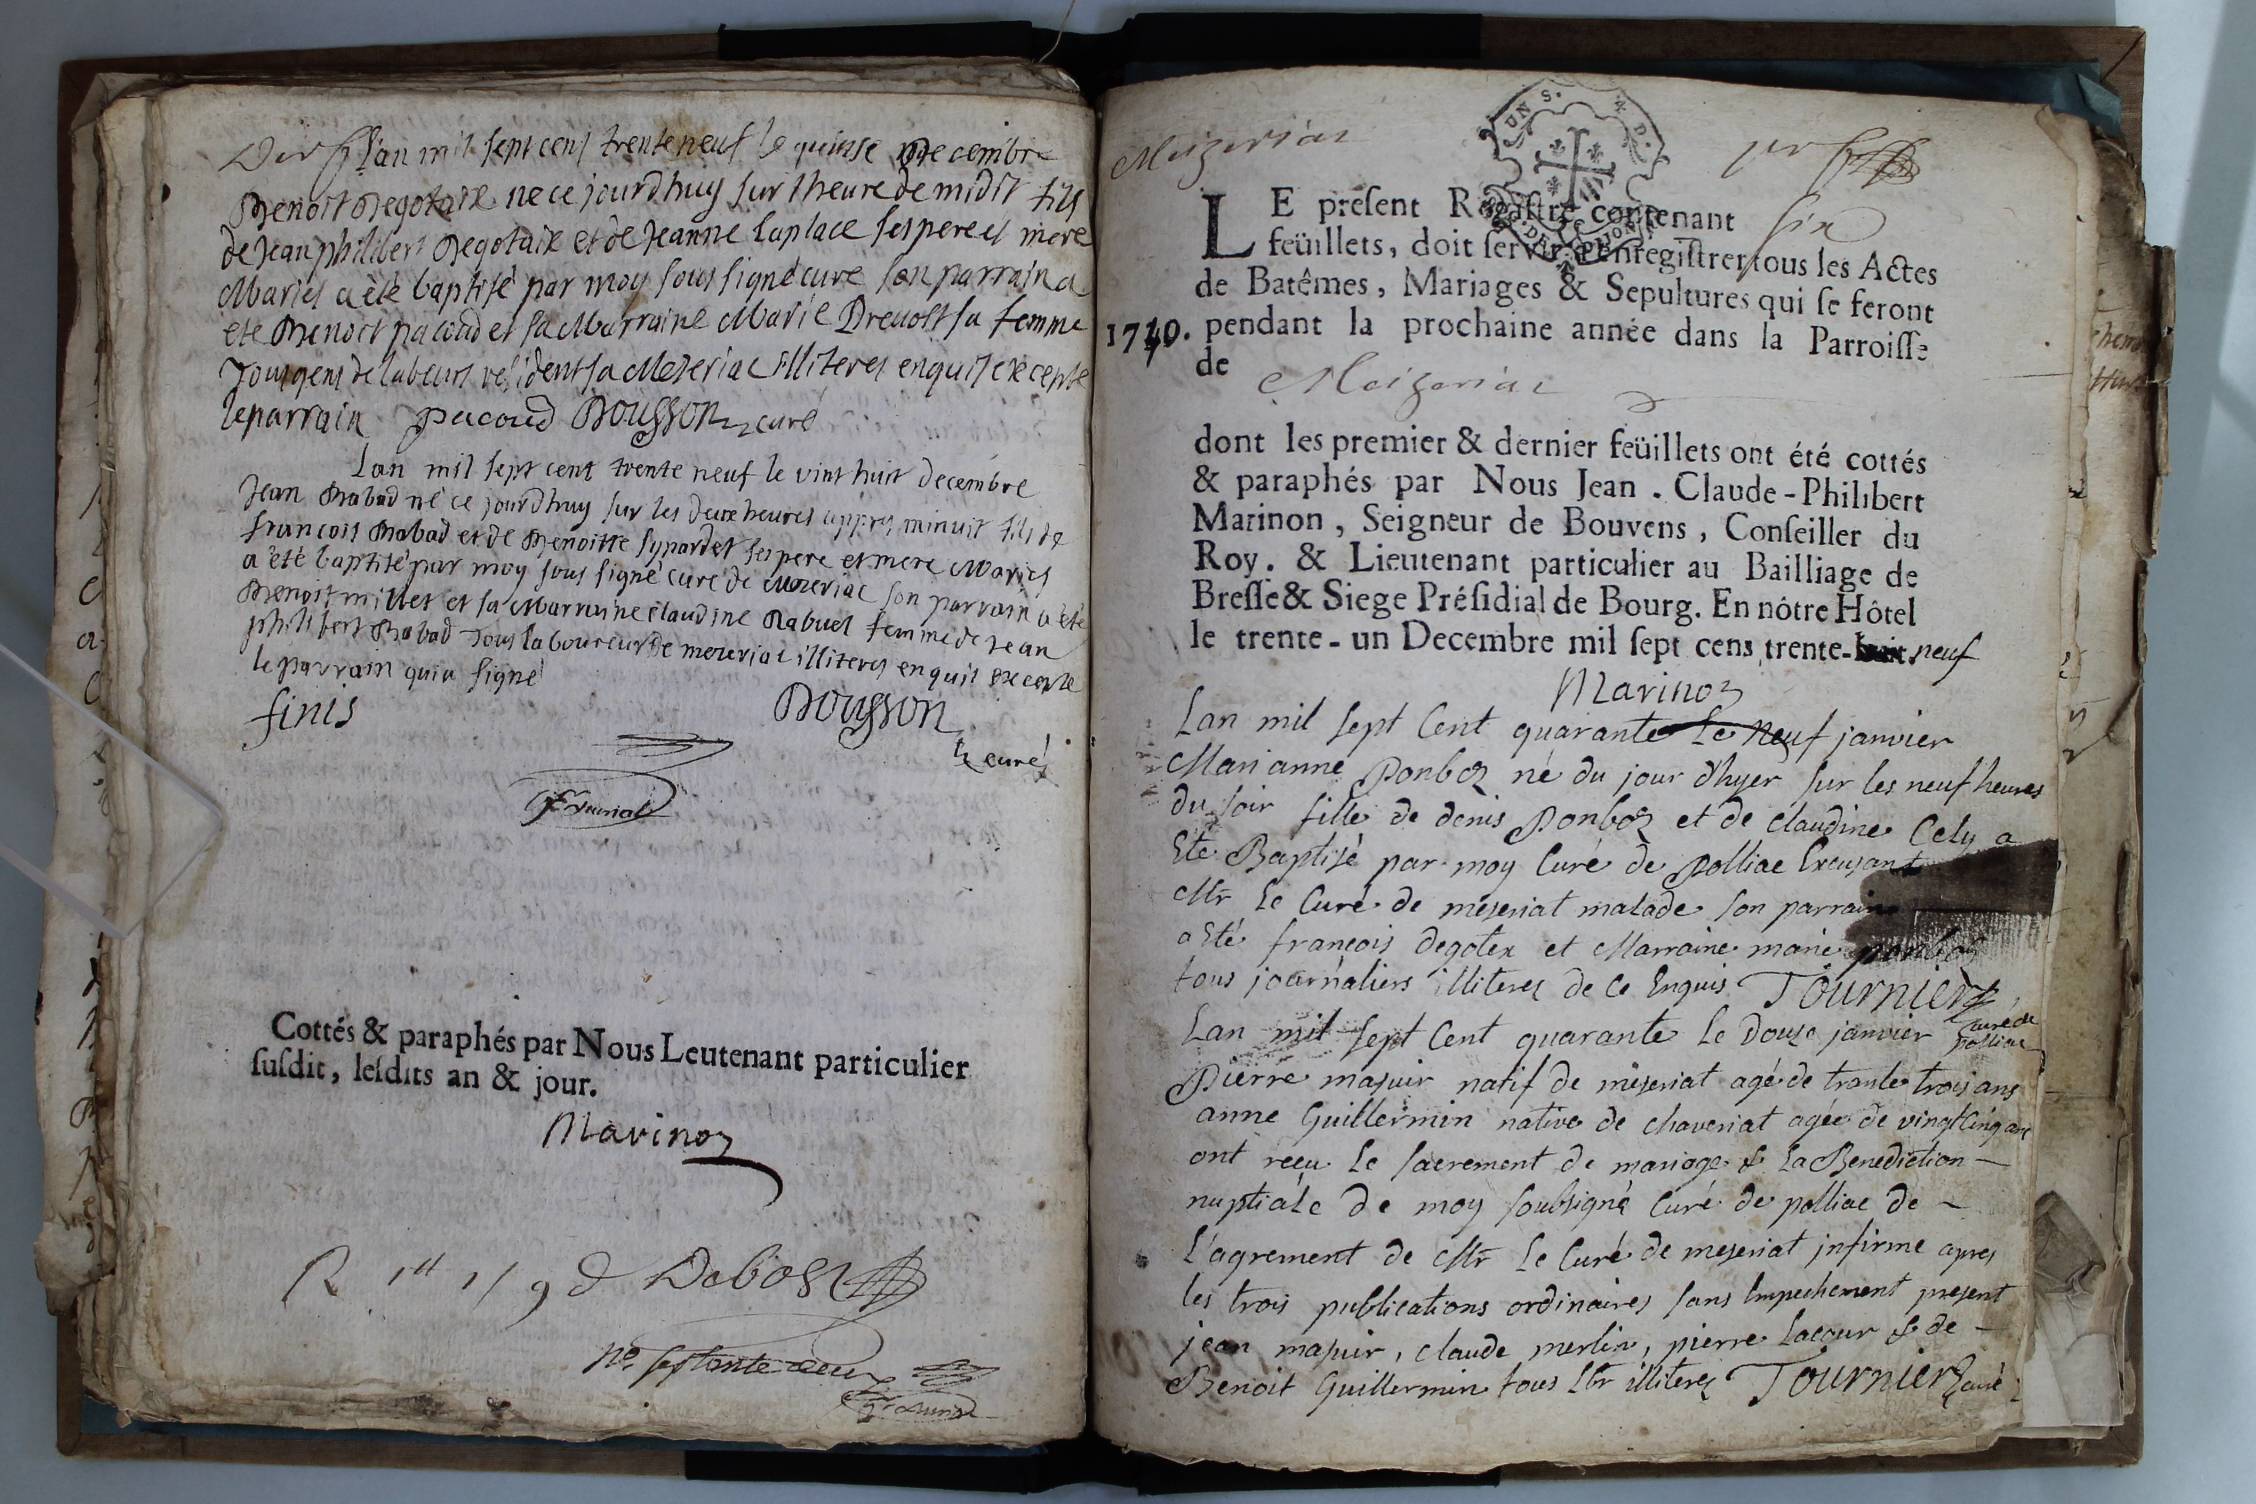 Der l'an mil sept cens trente neuf le quinse decembre
Benoit Degotaix ne ce jourdhuy sur lheure de midit fils
de Jean philibert Degotaix et de Jeanne laplace ses pere et mere
Maries a èté baptisé par moy sous signé curé son parrain a
eté Benoit pacoud et sa Marraine Marie Drevost sa femme
Tous gens de labeurs résident sa Meseriac illiteres enquis excepte
le parrain pacoud Bousson curé
Lan mil sept cent trente neuf le vint huit decembre
Jean Babad né ce jourdhuy sur les deux heures appres minuit fils de
francois Babad et de Benoitte sypardet ses pere et mere Maries
a été baptisé par moy sous signé curé de Mezeriac son parrain a été
Benoit millet et sa Marraine claudine Rabuel femme de Jean
philibert Babad Tous laboureurs de mezeriac illiteres enquis excepte
le parrain qui a signé
finis Bousson
curé
Cottés & paraphés par Nous Leutenant particulier
susdit, lesdits an & jour.
Marinon
R 1d 1/ 9 d Debost
No. septante deux
Meizeriac
UN S. X D.
LE present Regîstre contenant six
feüillets, doit servir à enregistrer tous les Actes
de Batêmes, Mariages & Sepultures qui se feront
1740. pendant la prochaine année dans la Parroisse
de Meizeriac
dont les premier & dernier feüillets ont été cottés
& paraphés par Nous Jean . Claude-Philibert
Marinon, Seigneur de Bouvens, Conseiller du
Roy. & Lieutenant particulier au Bailliage de
Bresse & Siege Présidial de Bourg. En nôtre Hôtel
le trente-un Decembre mil sept cens trente-huit. neuf
Marinon
Lan mil sept Cent quarante Le Neuf janvier
Marianne Ponboz né du jour d'hyer sur les neuf heures
du soir fille de denis Ponboz et de claudine Cely a
Eté Baptisé par moy Curé de Polliac Excusant
Mr Le Curé de meseriat malade son parrain
a Eté françois degotex et Marraine marie ponboz
tous journaliers illiteres de Ce Enquis Tournier
curé de
polliac
Lan mil sept Cent quarante Le Douze janvier
Pierre masuir natif de meseriat agé de trante trois ans
anne Guillermin native de chaveriat agée de vingt Cinq ans
ont reçu Le sacrement de mariage & La Benediction
nuptiale De moy soubsigné Curé de polliac de
L'agrement de Mr Le Curé de meseriat infirme apres
les trois publications ordinaires sans Empechement present
jean masuir, claude merlin, pierre Lacour & de
Benoit Guillermin tous Etr illiteres Tournier curé